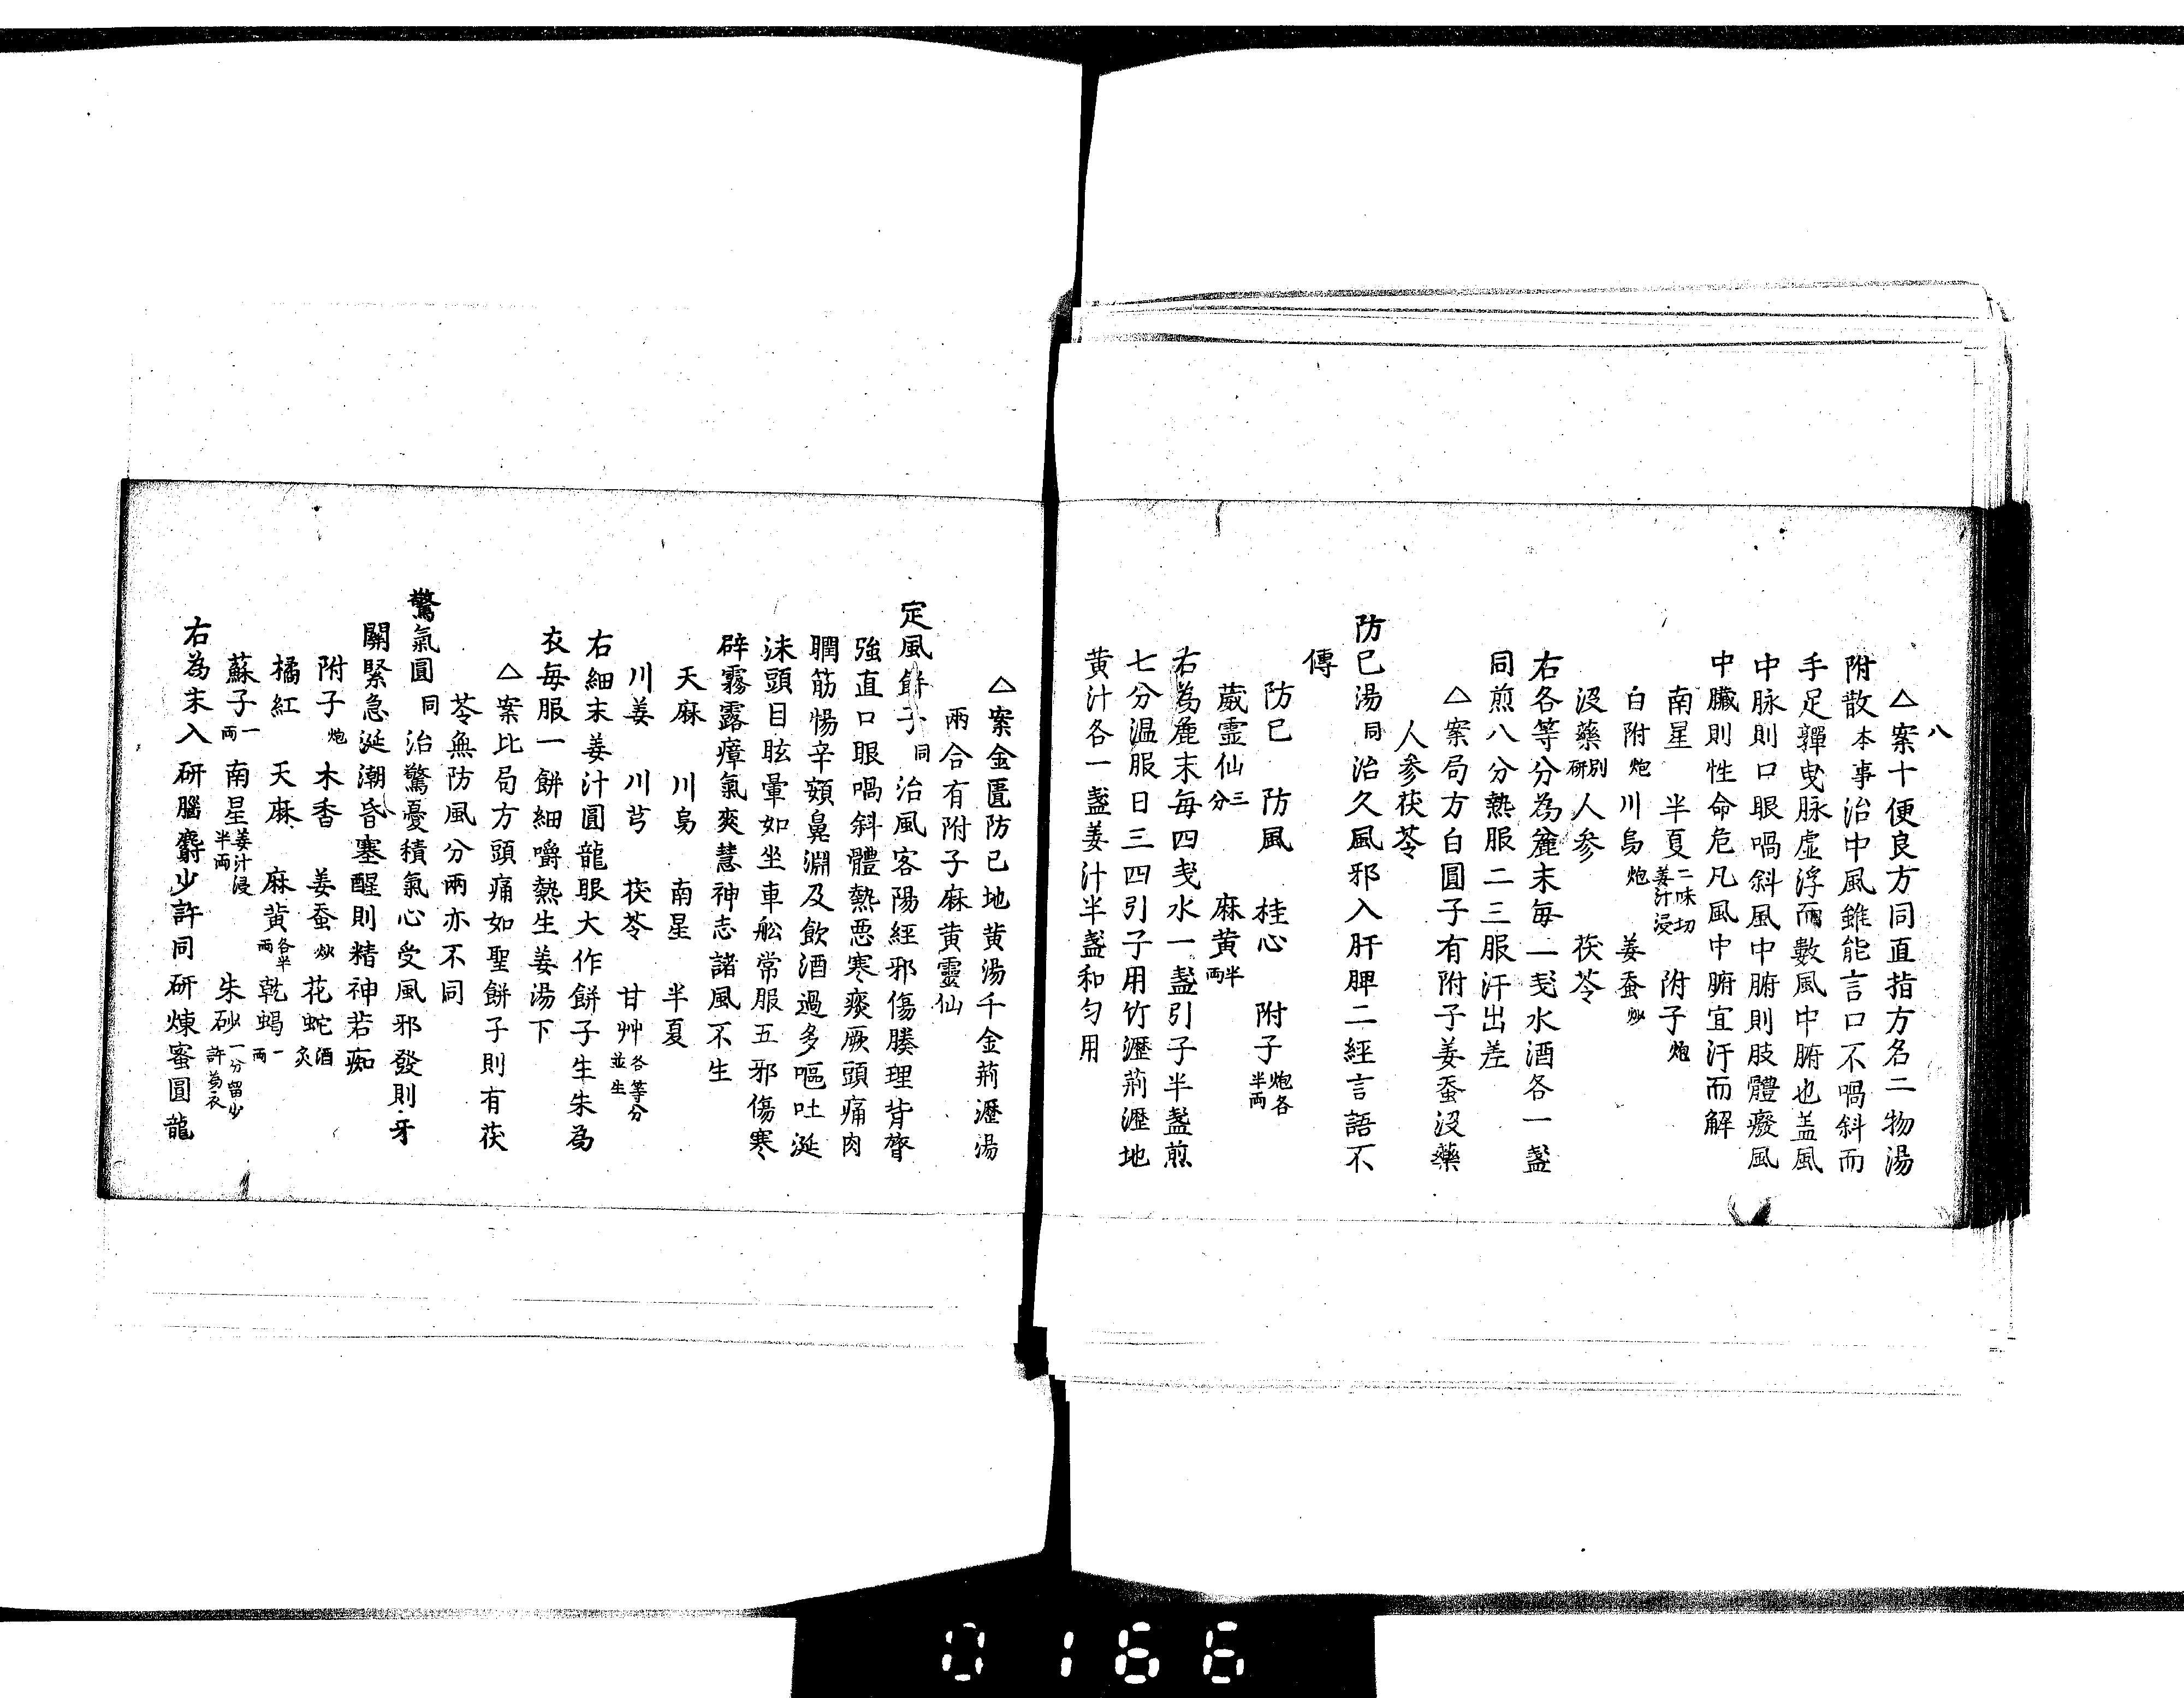 八
△案十便良方同直指方名二物湯
附散本事治中風雖能言口不喎斜而
手足軃曳脉虛浮而數風中腑也盖風
中脉則口眼喎斜風中腑則肢體癈風
中臟則性命危凡風中腑宜汗而解
南星 半夏二味切姜汁浸 附子炮
白附炮 川烏炮 姜蚕炒
沒藥別研 人参 茯苓
右各等分為麄末每一戔水酒各一盞
同煎八分熱服二三服汗出差
△案局方白圓子有附子姜蚕沒藥
人参茯苓
防已湯同 治久風邪入肝脾二經言語不
傳
防已 防風 桂心 附子炮各半両
葳霊仙三分 麻黄半両
右為麁末每四戔水一盞引子半盞煎
七分温服日三四引子用竹瀝荊瀝地
黄汁各一盞姜汁半盞和匀用
△案金匱防已地黄湯千金荊瀝湯
兩合有附子麻黄靈仙
定風餅子同 治風客陽經邪傷腠理背膂
強直口眼喎斜體熱悪寒痰厥頭痛肉
瞤筋惕辛頞鼻淵及飲酒過多嘔吐涎
沫頭目眩暈如坐車舩常服五邪傷寒
辟霧露瘴氣爽慧神志諸風不生
天麻 川烏 南星 半夏
川姜 川芎 茯苓 甘艸各等分並生
右細末姜汁圓龍眼大作餅子生朱為
衣每服一餅細嚼熱生姜湯下
△案比局方頭痛如聖餅子則有茯
苓無防風分兩亦不同
驚氣圓同 治驚憂積氣心受風邪發則牙
關緊急涎潮昏塞醒則精神若痴
附子炮 木香 姜蚕炒 花蛇酒炙
橘紅 天麻 麻黄各半両 乾蝎一両
蘇子一両 南星姜汁浸半両 朱砂一分留少許為衣
右為末入研腦麝少許同研煉蜜圓龍
0166